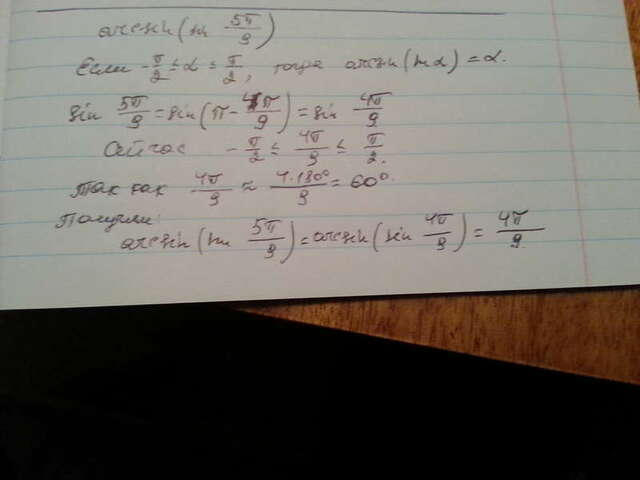 arcsin(sin 5π/9)
Если -π/2 ≤ α ≤ π/2, тогда arcsin(sin α) = α.
sin 5π/9 = sin(π - 4π/9) = sin 4π/9
Сейчас -π/2 ≤ 4π/9 ≤ π/2.
Так как 4π/9 ≈ 4·180°/9 = 60°.
Получим:
arcsin(sin 5π/9) = arcsin(sin 4π/9) = 4π/9.